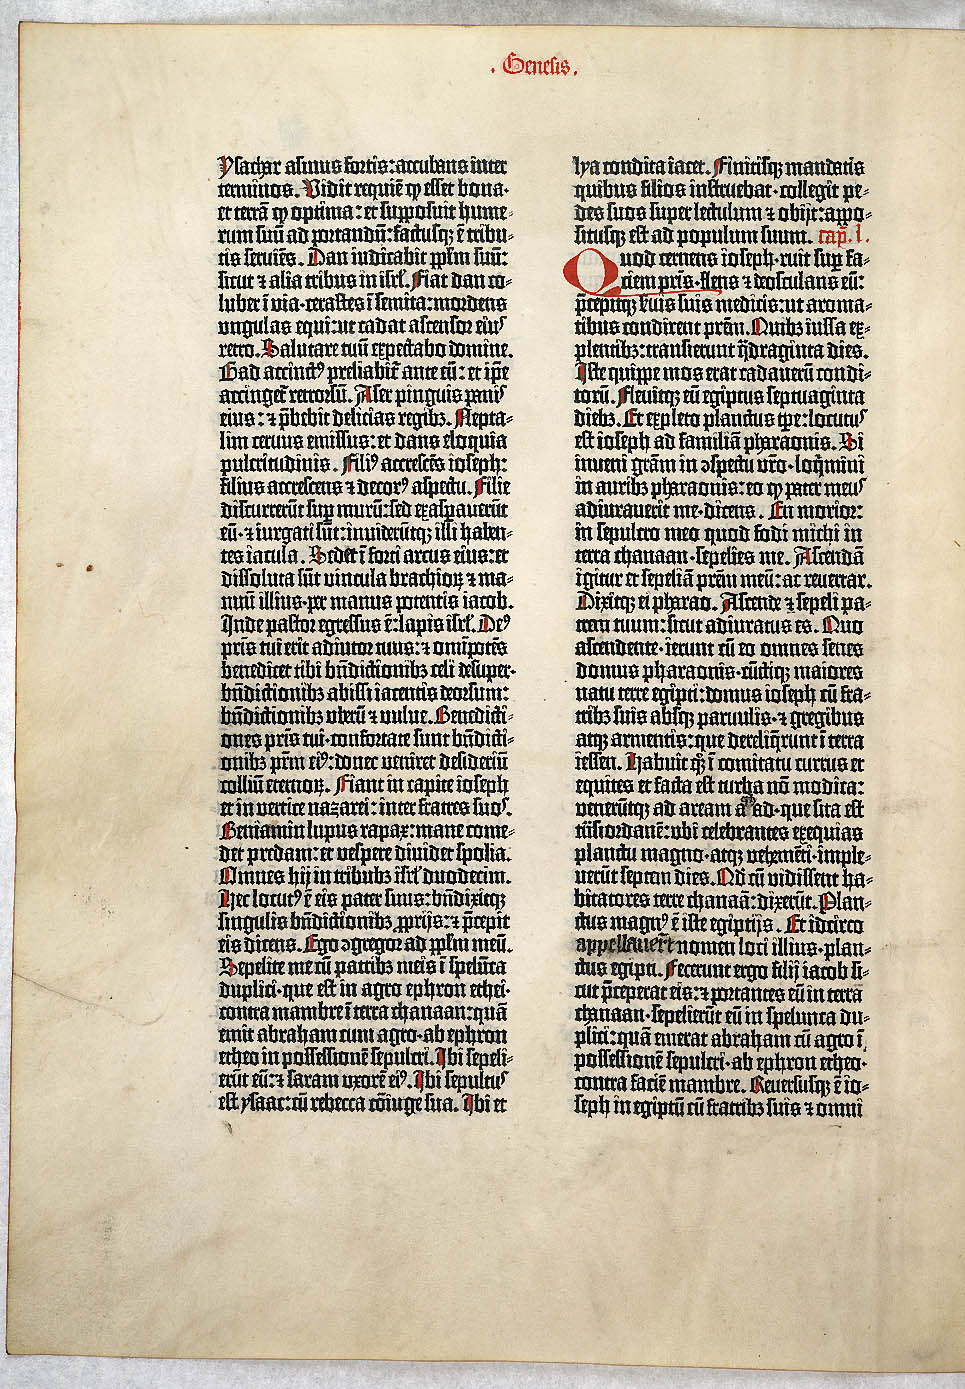 . Genesis .
Ysachar asinus fortis: accubans inter
terminos. Vidit requiē ꝙ esset bona·
et terrā ꝙ optima: et supposuit hume-
rum suū ad portandū: factusqꝫ ē tribu-
tis seruiēs. Dan iudicabit ppl̄m suū:
sicut ⁊ alia tribus in isrl̄. Fiat dan co-
luber ī via· cerastes ī semita: mordens
vngulas equi: ut cadat ascensor eiusꝰ
retro. Salutare tuū expectabo domine.
Gad accinctꝰ preliabit̄ ante eū: et ip̄e
accinget̄ retrorsū. Aser pinguis panis
eius: ⁊ p̄bebit delicias regibꝫ. Nepta-
lim ceruus emissus: et dans eloquia
pulcritudinis. Filiꝰ accrescēs ioseph:
filius accrescens ⁊ decorꝰ aspectu. Filie
discurrerūt sup̄ murū: sed exasperauerūt
eū· ⁊ iurgati sūt: inuiderūtqꝫ illi haben-
tes iacula. Sedet ī forti arcus eius: et
dissoluta sūt vincula brachioꝝ ⁊ ma-
nuū illius· per manus potentis iacob.
Inde pastor egressus ē: lapis isrl̄. Deꝰ
pr̄is tui erit adiutor tuus: ⁊ om̄ipotēs
benedicet tibi bn̄dictionibꝫ celi desuper·
bn̄dictionibꝫ abissi iacentis deorsum:
bn̄dictionibꝫ vberū ⁊ vulue. Benedicti-
ones pr̄is tui· confortate sunt bn̄dicti-
onibꝫ pr̄m eiꝰ: donec veniret desideriū
colliū eternoꝝ. Fiant in capite ioseph
et in vertice nazarei: inter fratres suos.
Beniamin lupus rapax: mane come-
det predam: et vespere diuidet spolia.
Omnes hij in tribubꝫ isrl̄ duodecim.
Hec locutꝰ ē eis pater suus: bn̄dixitqꝫ
singulis bn̄dictionibꝫ ꝓprijs: ⁊ p̄cepit
eis dicens. Ego ↄgregor ad ppl̄m meū.
Sepelite me cū patribꝫ meis ī spelūca
duplici· que est in agro ephron ethei·
contra mambre ī terra chanaan: quā
emit abraham cum agro· ab ephron
etheo in possessionē sepulcri. Ibi sepeli-
erūt eū: ⁊ saram vxorē eiꝰ. Ibi sepultus
est ysaac: cū rebecca cōiuge sua. Ibi et
lya condita iacet. Finitisqꝫ mandatis
quibus filios instruebat· collegit pe-
des suos super lectulum ⁊ obijt: appo-
situsqꝫ est ad populum suum. cap̄. l.
Quod cernens ioseph· ruit sup̄ fa-
ciem pr̄is· flens ⁊ deosculans eū:
p̄cepitqꝫ s̄uis suis medicis: ut aroma-
tibus condirent pr̄em. Quibꝫ iussa ex-
plentibꝫ: transierunt q̄draginta dies.
Iste quippe mos erat cadauerū condi-
torū. Fleuitqꝫ eū egiptus septuaginta
diebꝫ. Et expleto planctus tp̄e: locutus
est ioseph ad familiā pharaonis. Si
inueni grām in ↄspectu vr̄o· loq̄mini
in auribꝫ pharaonis: eo ꝙ pater meus
adiurauerit me· dicens. En morior:
in sepulcro meo quod fodi michi in
terra chanaan· sepelies me. Ascendā
igitur et sepeliā pr̄em meū: ac reuertar.
Dixitqꝫ ei pharao. Ascende ⁊ sepeli pa-
trem tuum: sicut adiuratus es. Quo
ascendente· ierunt cū eo omnes senes
domus pharaonis· cūctiqꝫ maiores
natu terre egipti: domus ioseph cū fra-
tribꝫ suis absqꝫ paruulis· ⁊ gregibus
atqꝫ armentis: que dereliq̄runt ī terra
iessen. Habuit qꝫ ī comitatu currus et
equites et facta est turba nō modica:
venerūtqꝫ ad aream a ad· que sita est
trāsiordanē: vbi celebrantes exequias
planctu magno· atqꝫ vehemēti· imple-
uerūt septem dies. Qd̄ cū vidissent ha-
bitatores terre chanaā: dixerūt. Plan-
ctus magnꝰ ē iste egiptijs. Et idcirco
appellauerūt nomen loci illius· plan-
ctus egipti. Fecerunt ergo filij iacob si-
cut p̄ceperat eis: ⁊ portantes eū in terrā
chanaan· sepelierūt eū in spelunca du-
plici: quā emerat abraham cū agro ī
possessionē sepulcri· ab ephron etheo·
contra faciē mambre. Reuersusqꝫ ē io-
seph in egiptū cū fratribꝫ suis ⁊ omni